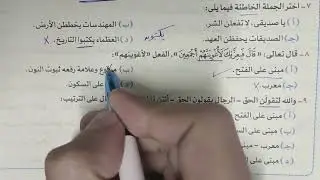 ٧- اختر الجملة الخاطئة فيما يلي:
(أ) يا صديقي، لا تفعلن الشر.
(ب) المهندسات يخططن الأرض.
(ج) الصديقات يحفظن العهد.
(د) العظماء يكتبوا التاريخ. X
يكتبون
٨- قال تعالى: «قَالَ فَبِعِزَّتِكَ لَأُغْوِيَنَّهُمْ أَجْمَعِينَ»، الفعل «لأغوينهم»:
(أ) مبنى على الفتح.
(ب) مرفوع وعلامة رفعه ثبوت النون.
(ج) معرب. X
على السكون
٩- والله لتقولن الحق - الرجال يقولون الحق -
على الترتيب:
(أ) مبنى على الفتح -
(ج) مبنى -